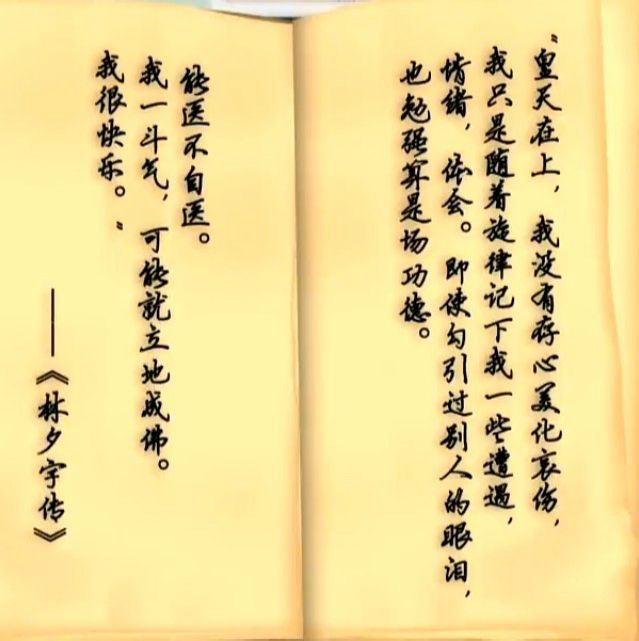 "皇天在上，我没有存心美化哀伤，
我只是随着旋律记下我一些遭遇，
情绪，体会。即使勾引过别人的眼泪，
也勉强算是场功德。
能医不自医。
我一斗气，可能就立地成佛。
我很快乐。"
——《林夕字传》